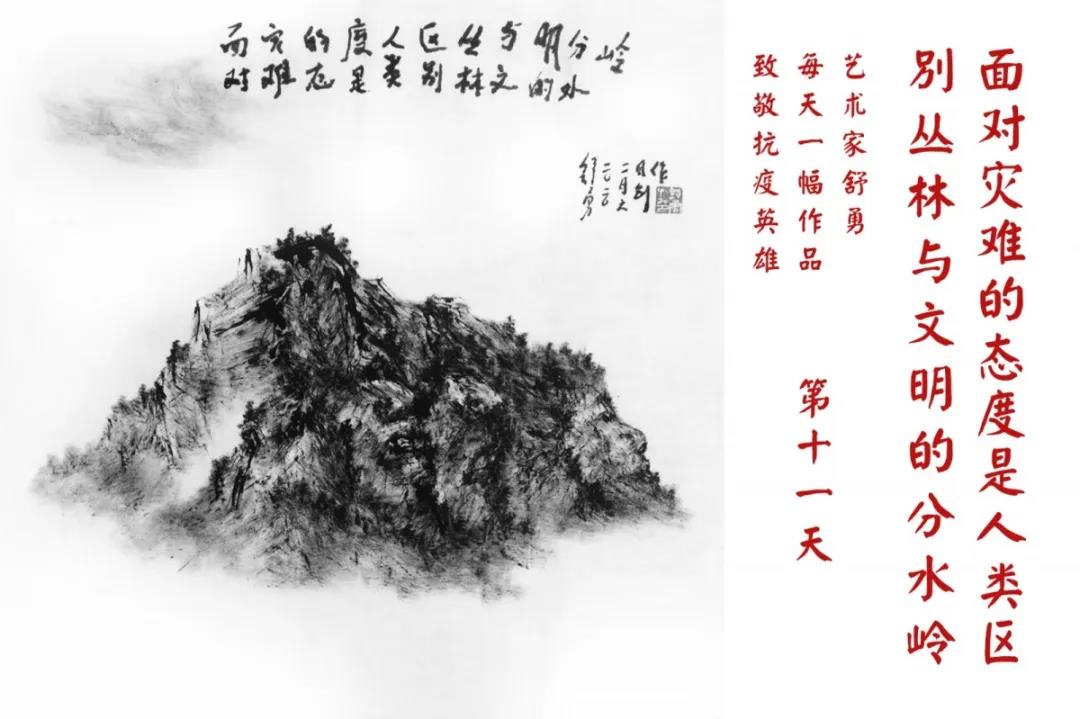 面对灾难的态度是人类区别丛林与文明的分水岭
舒勇
二〇二〇
二月六
日创
作
面对灾难的态度是人类区
别丛林与文明的分水岭
艺术家舒勇
每天一幅作品
致敬抗疫英雄
第十一天